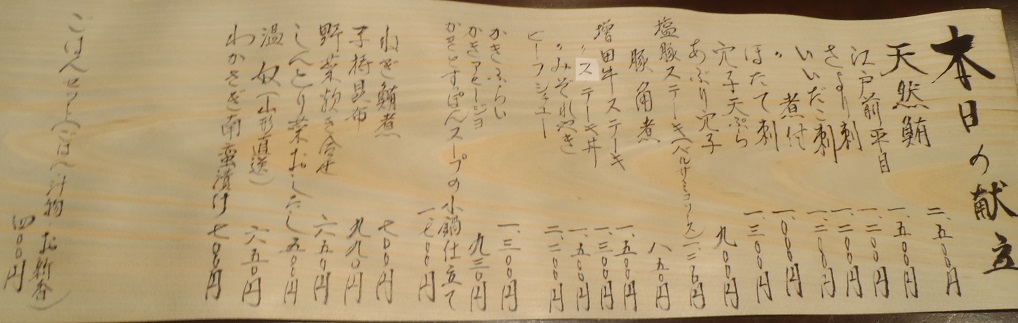 本日の献立
天然鮪 二、五〇〇円
江戸前平目 一、五〇〇円
さより刺 一、二〇〇円
いいだこ刺 一、二〇〇円
〃 煮付 一、二〇〇円
ほたて刺 一、〇〇〇円
穴子天ぷら 一、三〇〇円
あぶり穴子 九〇〇円
塩豚ステーキ
豚角煮 八五〇円
増田牛ステーキ 一、五〇〇円
〃ステーキ丼 一、三〇〇円
〃みそれやき 一、五〇〇円
ビーフシチュー 二、二〇〇円
かきふらい 一、三〇〇円
かきアヒージョ 九三〇円
かきとすっぽんスープの小鍋仕立て 一、七〇〇円
ねぎ鮪煮 七〇〇円
子持昆布 九九〇円
野菜炊き合せ 六五〇円
しんとり菜おしたし 五〇〇円
温奴(山形直送) 六五〇円
わかさぎ南蛮漬け 七〇〇円
ごはんセット(ごはん 汁物 お新香) 四〇〇円